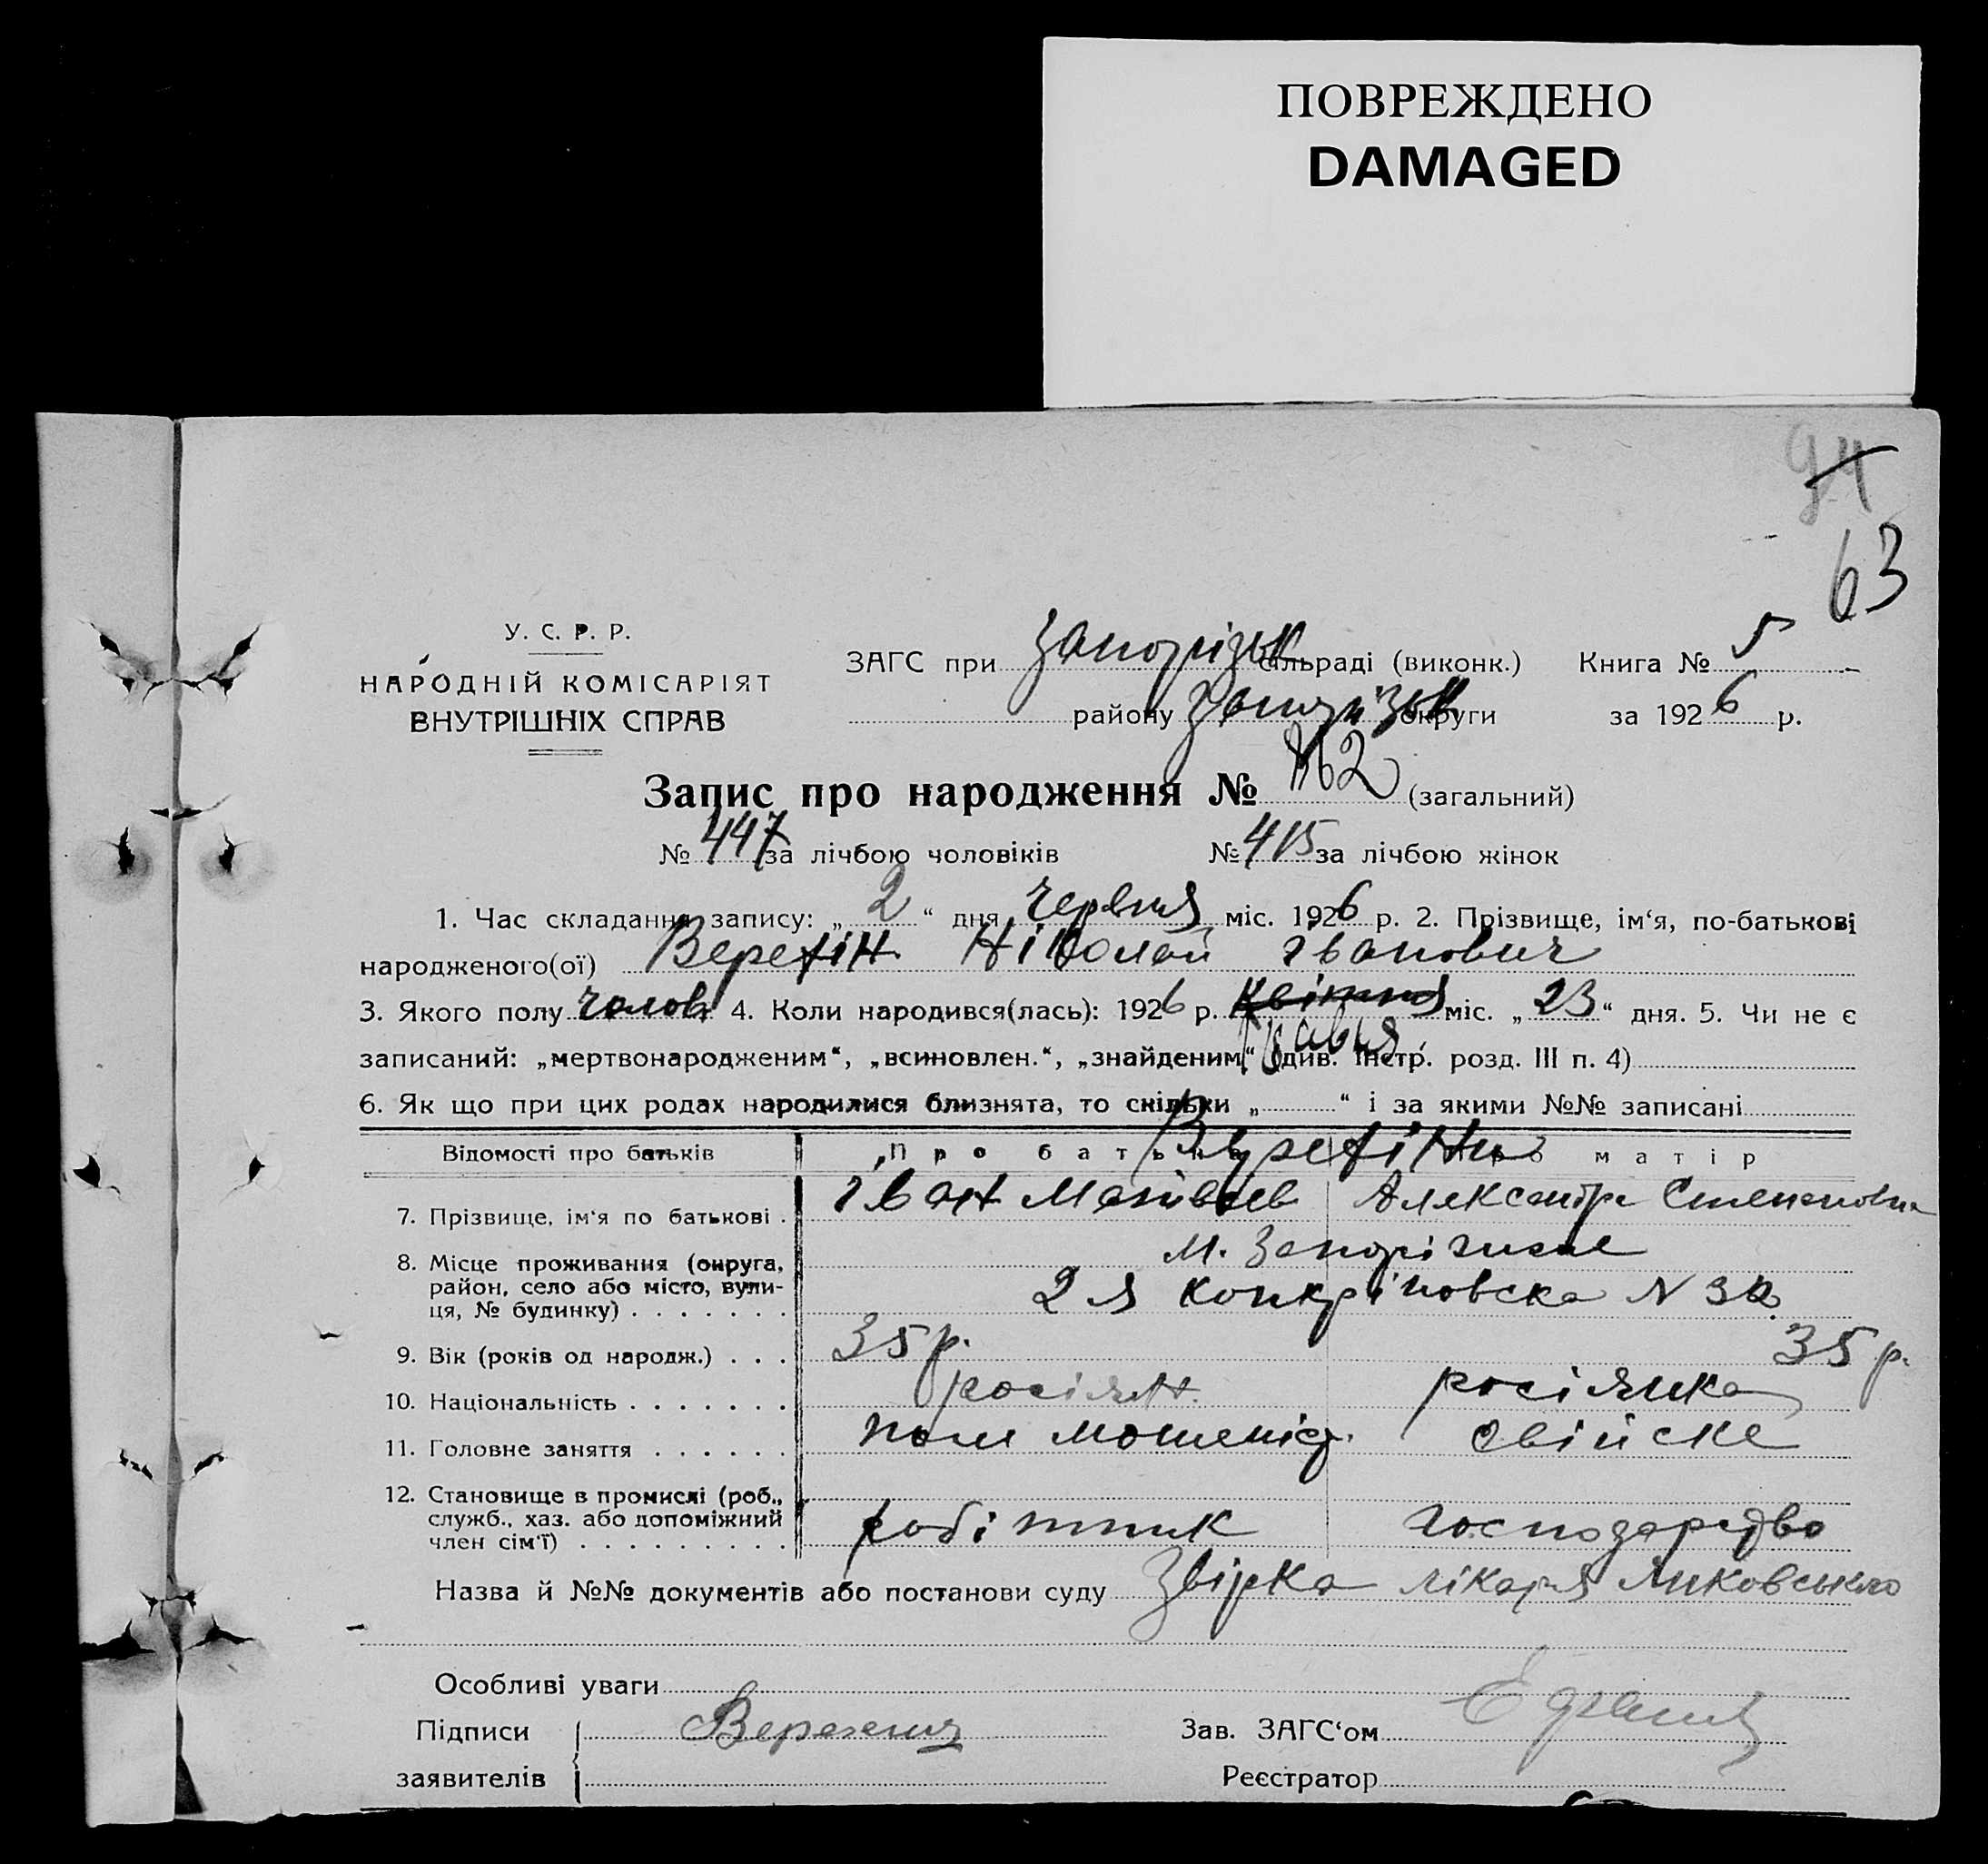 ПОВРЕЖДЕНО
DAMAGED
94
63
У. С. Р. Р.
НАРОДНІЙ КОМІСАРІЯТ
ВНУТРІШНІХ СПРАВ
ЗАГС при Запорізьк сільраді (виконк.) Книга № 5
району Запорізьк округи за 1926 р.
Запис про народження № 862 (загальний)
№ 447 за лічбою чоловіків № 415 за лічбою жінок
1. Час складання запису: „2“ дня червня міс. 1926 р. 2. Прізвище, ім‘я, по-батькові
народженого(ої) Веретін Ніколай Іванович
3. Якого полу чолов. 4. Коли народився(лась): 1926 р. Квітня міс. „23“ дня. 5. Чи не є
травня
записаний: „мертвонародженим“, „всиновлен.“, „знайденим“ (див. Інстр. розд. III п. 4)
6. Як що при цих родах народилися близнята, то скільки „ “ і за якими №№ записані
Відомості про батьків Про батька Про матір
Веретіни
7. Прізвище, ім‘я по батькові . Іван Матвіев Александра Степановна
8. Місце проживання (округа, м. Запоріжжє
район, село або місто, вули- 2 я N 32
ця, № будинку) . . . . . . .
9. Вік (років од народж.) . . . 35 р. 35 р.
10. Національність . . . . . . . росіян. росіянка
11. Головне заняття . . . . . . свійске
12. Становище в промислі (роб.,
служб., хаз. або допоміжний робітник господарство
член сім‘ї) . . . . . . . . .
Назва й №№ документів або постанови суду лікаря
Особливі уваги
Підписи Зав. ЗАГС‘ом
заявителів Реєстратор